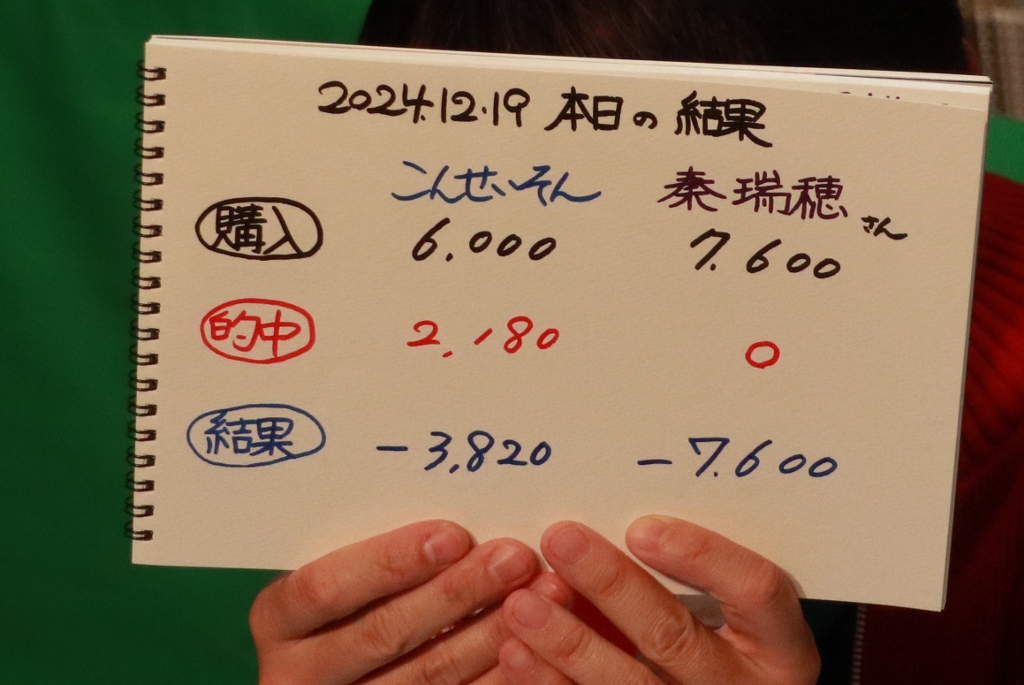 2024.12.19 本日の結果
こんせいそん 秦瑞穂さん
購入 6.000 7.600
的中 2,180 0
結果 -3,820 -7.600